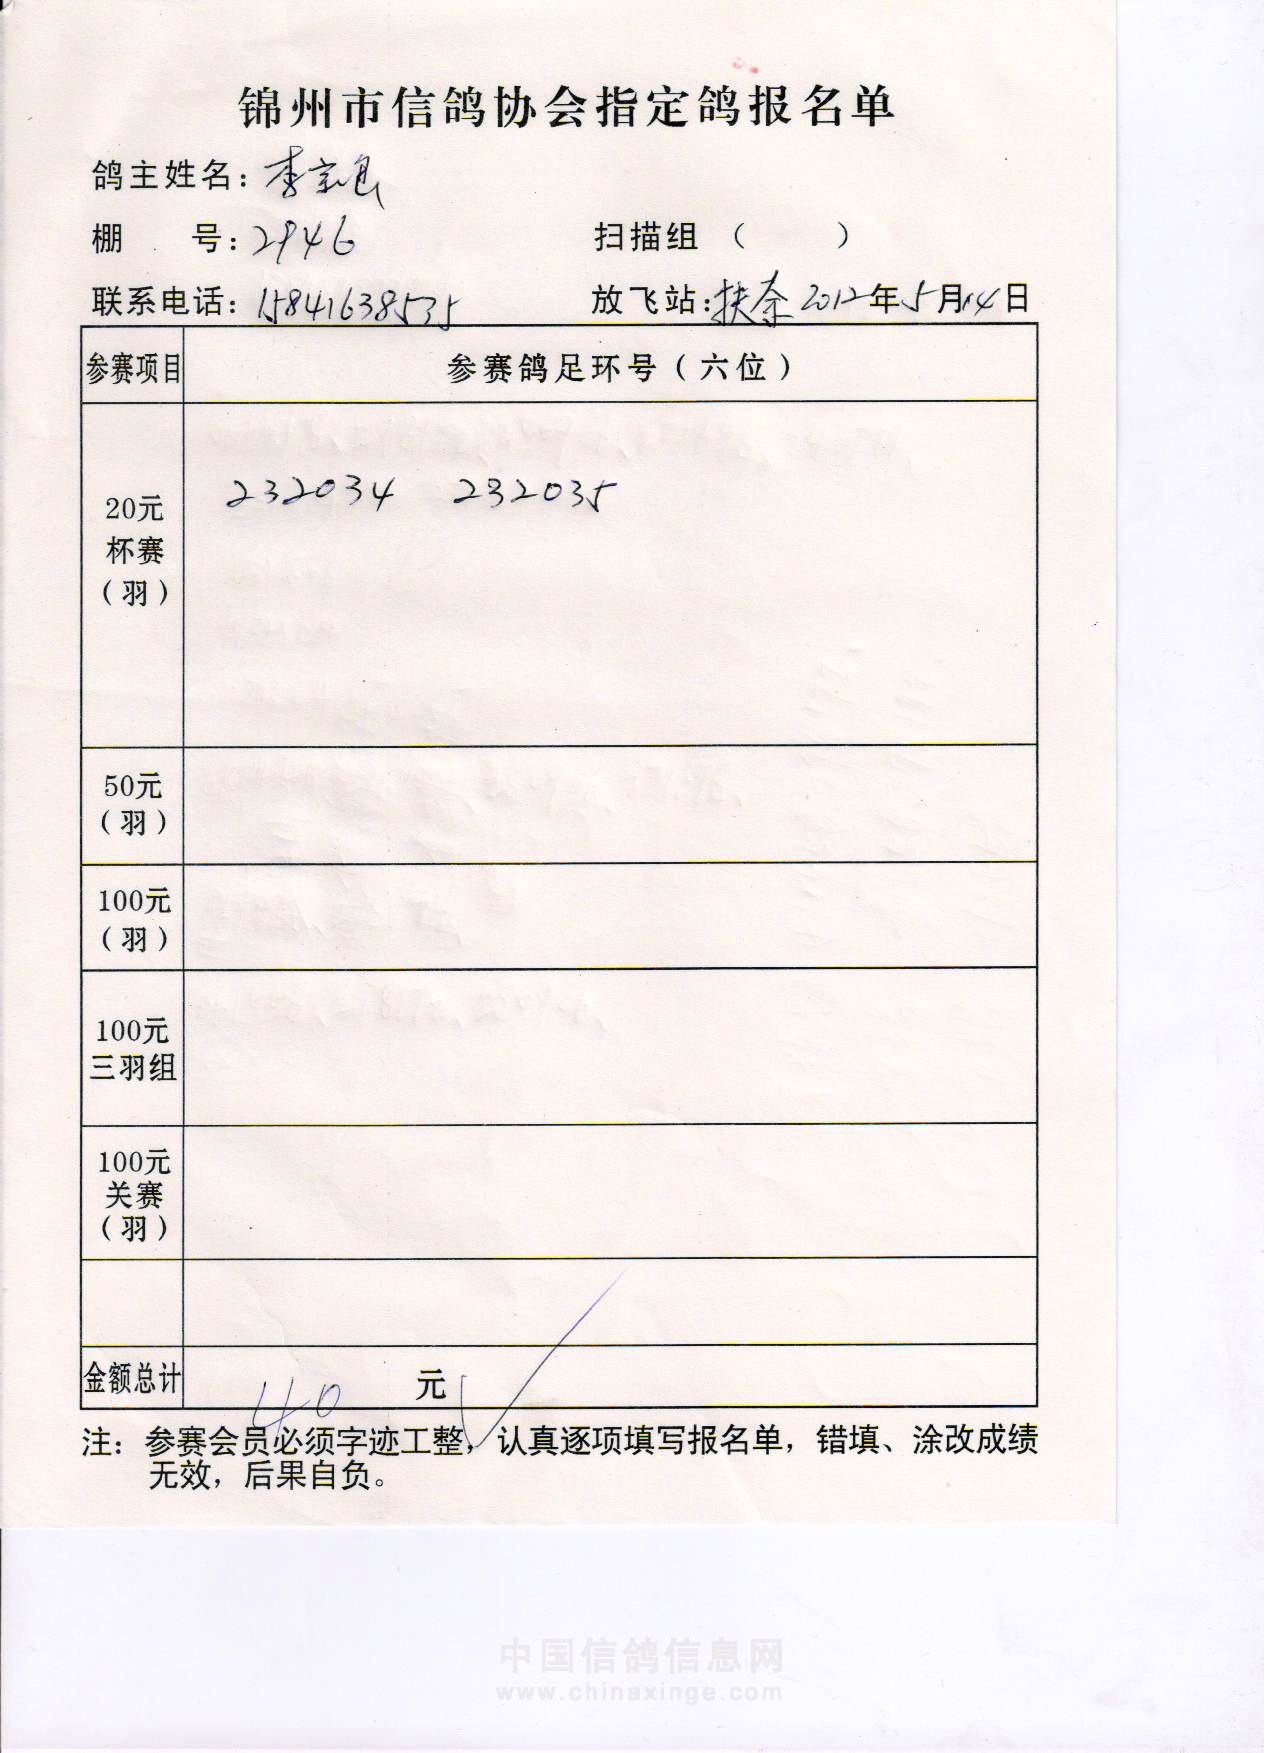 锦州市信鸽协会指定鸽报名单
鸽主姓名：李宗
棚 号：2946
扫描组（ ）
联系电话：15841638535
放飞站：扶余 2012年5月14日
参赛项目
参赛鸽足环号（六位）
20元
杯赛
（羽）
232034 232035
50元
（羽）
100元
（羽）
100元
三羽组
100元
关赛
（羽）
金额总计
40 元 √
注：参赛会员必须字迹工整，认真逐项填写报名单，错填、涂改成绩
无效，后果自负。
中国信鸽信息网
www.chinaxinge.com